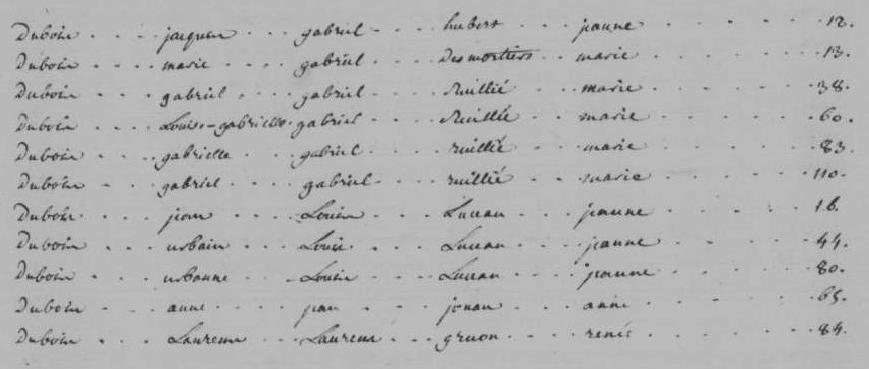 Dubois jacques gabriel hubert jeanne 12.
Dubois marie gabriel Desmortiers marie 13.
Dubois gabriel gabriel Ruillié marie 38.
Dubois Louise-gabrielle gabriel Ruillié marie 60.
Dubois gabrielle gabriel ruillié marie 83.
Dubois gabriel gabriel ruillié marie 110.
Dubois Louis Luceau jeanne 18.
Dubois urbain Louis Luceau jeanne 44.
Dubois urbanne Louis Luceau jeanne 80.
Dubois anne jean anne 65.
Dubois Laurent Laurent gruon renée 84.